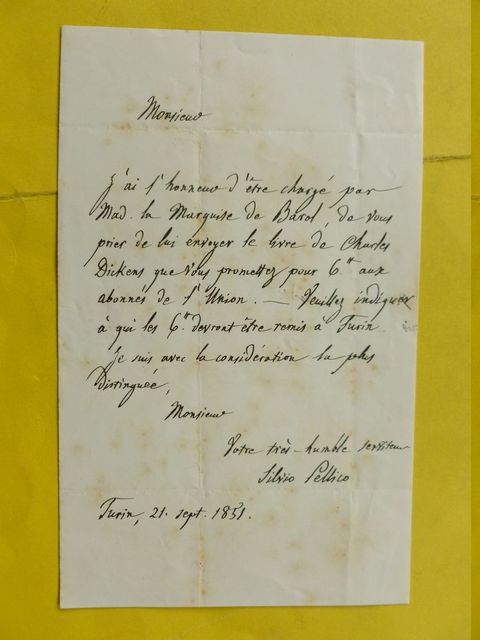 Monsieur
J'ai l'honneur d'être chargé par
Mad. la Marquise de Barol, de vous
prier de lui envoyer le livre de Charles
Dickens que vous promettez pour 6 fr aux
abonnés de l'Union. — Veuillez indiquer
à qui les 6 fr devront être remis à Turin.
Je suis avec la considération la plus
Distinguée,
Monsieur
Votre très-humble serviteur
Silvio Pellico
Turin, 21. sept. 1851.